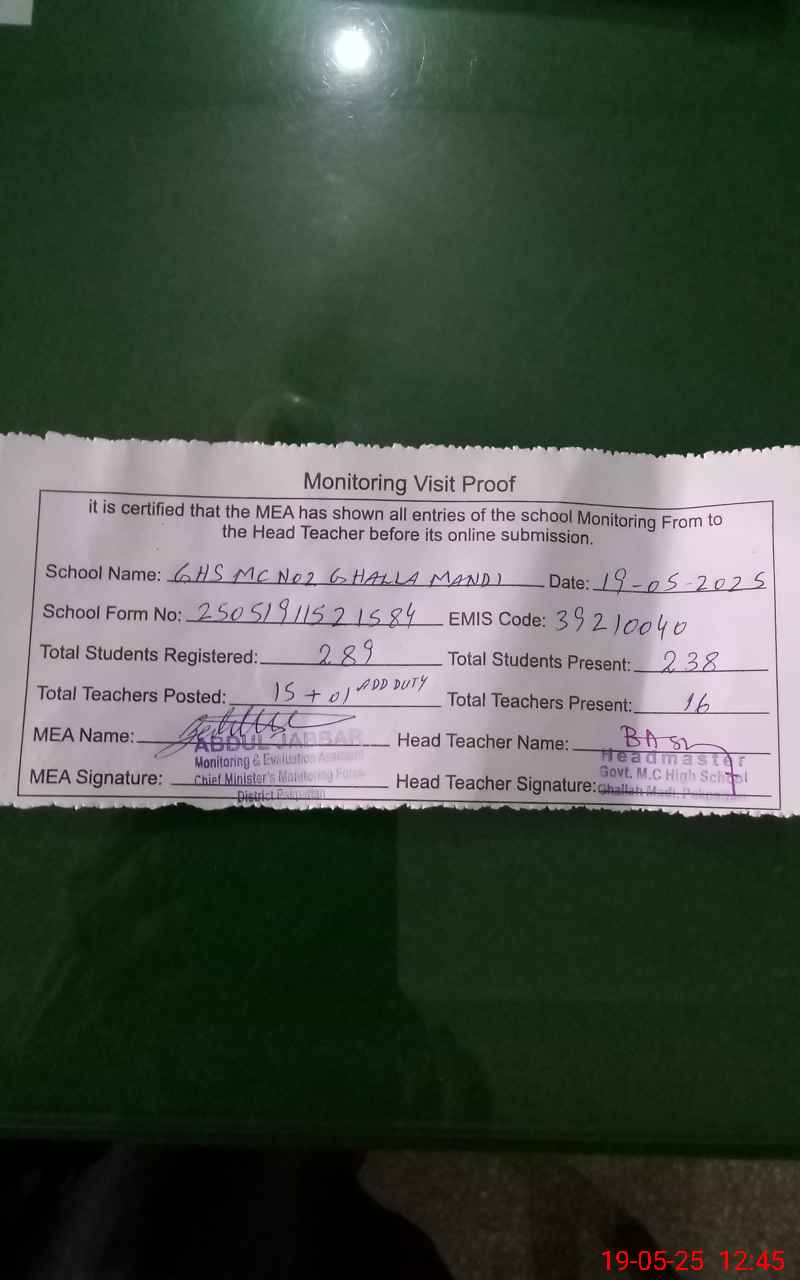 Monitoring Visit Proof
it is certified that the MEA has shown all entries of the school Monitoring From to
the Head Teacher before its online submission.
School Name: GHS MC NO2 GHALLA MANDI Date: 19-05-2025
School Form No: 25051911521584 EMIS Code: 39210040
Total Students Registered: 289 Total Students Present: 238
Total Teachers Posted: 15 + 01 ADD DUTY Total Teachers Present: 16
MEA Name: Head Teacher Name:
ABDUL JABBAR Headmaster
Monitoring & Evaluation Assistant Govt. M.C High School
MEA Signature: Chief Minister's Monitoring Force Head Teacher Signature: Ghallah Madi. Pakpattan
District Pakpattan
19-05-25 12:45